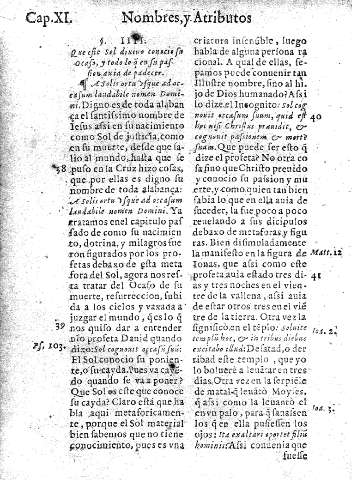 Cap.XI. Nombres, y Atributos
§. IIII.
Que este Sol diuino conocio su
Ocaso, y todo lo q̃ en su pas-
sion auia de padecer.
¶ A Solis ortu vsque ad oc-
casum laudabile nomen Domi-
ni. Digno es de toda alabã
ça el santissimo nombre de
Iesus assi en su nacimiento
como Sol de justicia, como
en su muerte, desde que sa-
lio al mundo, hasta que se
38 puso en la Cruz hizo cosas,
que por ellas es digno su
nombre de toda alabãça:
A Solis ortu vsque ad occasum
Laudabile nomen Domini. Ya
tratamos en el capitulo pas-
sado de como su nacimien-
to, dotrina, y milagros fue
ron figurados por los profe-
tas debaxo de esta meta
fora del Sol, agora nos res-
ta tratar del Ocaso de su
muerte, resurreccion, subi-
da a los cielos y vazada a
juzgar el mundo, q̃ es lo q̃
39 nos quiso dar a entender
nr̃o profeta Dauid quando
Ps. 103. dizo: Sol cognouit occasũ suũ:
El Sol conocio su ponien-
te, o su cayda. Pues va cayẽ
do quando se va a poner?
Que Sol es este que conoce
su cayda? Claro està que ha
bla aqui metaforicamen-
te, porque el Sol material
bien sabemos que no tiene
conocimiento, pues es vna
criatura insensible, luego
habla de alguna persona ra
cional. A qual de ellas, se-
pamos puede conuenir tan
illustre nombre, sino al hi-
jo de Dios humanado? Assi
lo dize el Incognito: Sol cog
nouit occasum suum, quid est
40 hoc nisi Christus præuidit, &
cognouit passionem & mortẽ
suam. Que puede ser esto q̃
dize el profeta? No otra co
sa sino que Christo preuido
y conocio su passion y mu
erte, y como quien tan bien
sabia lo que en ella auia de
suceder, la fue poco a poco
reuelando a sus dicipulos
debaxo de metaforas y figu
ras. Bien disimuladamente
la manifesto en la figura de Matt. 12
Ionas, que assi como este
profeta auia estado tres di- 41
as y tres noches en el vien-
tre de la vallena, assi auia
de estar otros tres en el viẽ
tre de la tierra. Otra vez la
significò en el tẽplo: soluite
templũ hoc, & in tribus diebus Ioã. 2.
excitabo illud: Desatad, o der
ribad este templo, que yo
lo boluere a leuãtar en tres
dias. Otra vez en la serpiẽte
de metal q̃ leuãtò Moyses,
q̃ assi como la leuantò el
en vn palo, para q̃ sanassen Ioã. 3.
los q̃ en ella pusessen los
ojos: Ita exaltari oportet filiũ
hominis: Assi conuenia que
fuesse